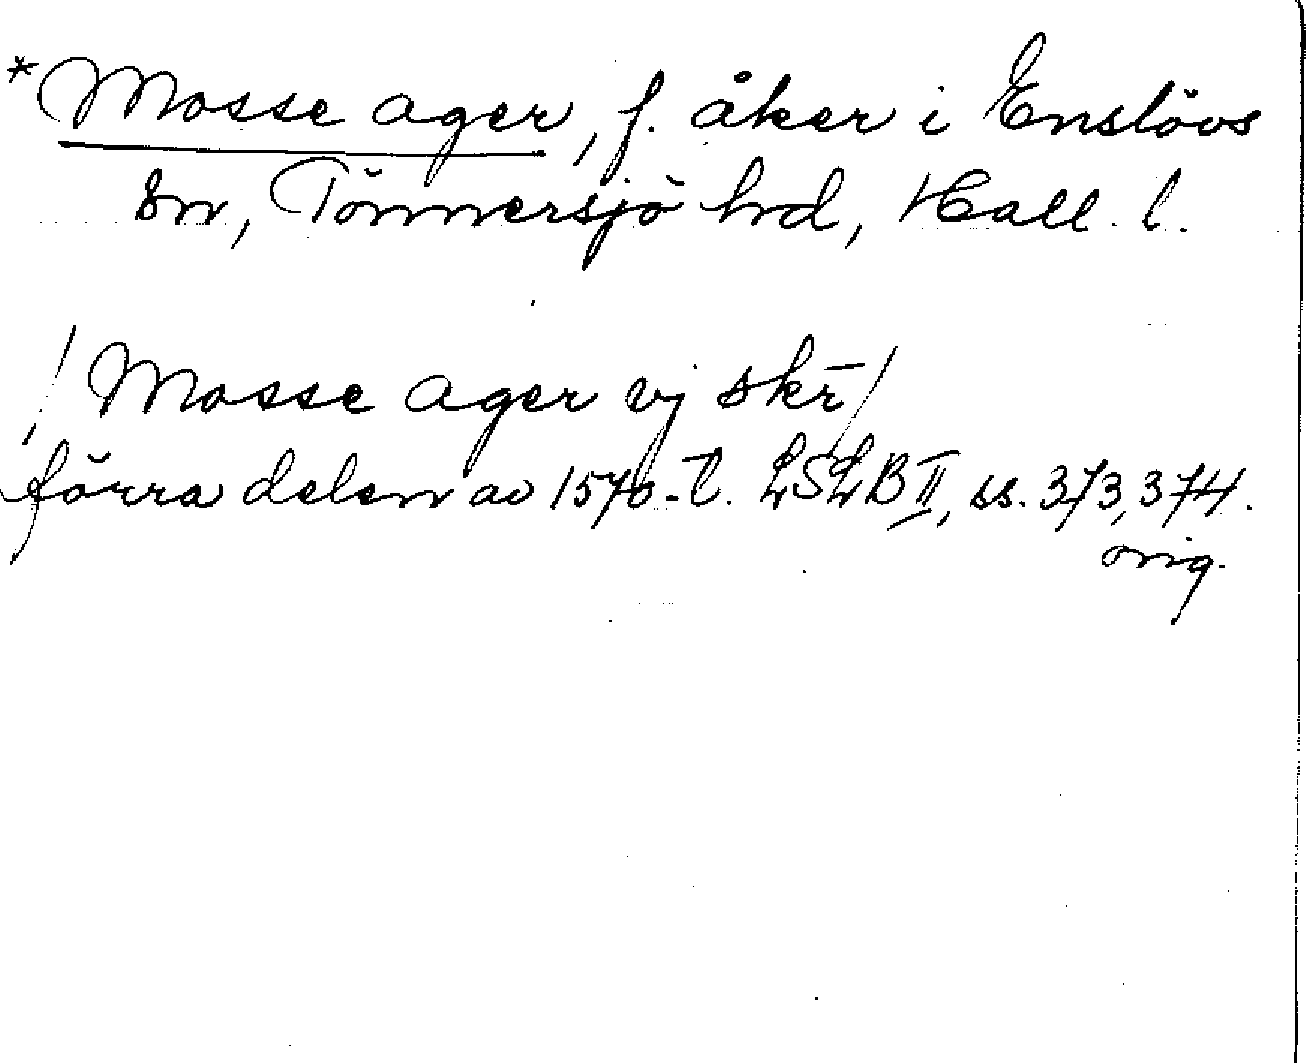 *Mosse ager, f. åker i Enslövs
sn, Tönnersjö hrd, Hall. l.
/Mosse ager vj skr̄/
förra delen av 1570-t. LSLB II, ss. 373, 374.
orig.